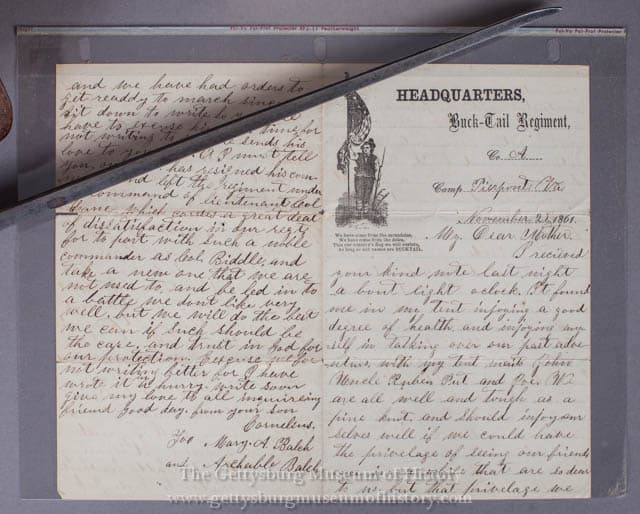 HEADQUARTERS,
Buck-Tail Regiment,
Co. A.
Camp Pierpont Va
November 2 1861.
We have come from the mountains,
We have come from the
My Dear Mother.
I recieved
your kind note last night
a bout eight oclock. It found
me in my tent injoying a good
degree of health and injoying my
self in talking over our past adve
with my tent maits John
Uncle Ruben Pit and Joe. We
are all well and tough as a
pine knot, and should injoy our
selves well if we could have
the privelage of seeing our friends
once in a while that are so dear
to us but that privelage we
and we have had orders to
get readdy to march
sit down to write to
have to excuse time for
not writing to sends his
love to you I must tell
you has resigned his com
and left the regiment under
command of lieutenant Col
which causes a great deal
of dissatisfaction in our regt
for to part with such a noble
commander as Col. Biddle, and
take a new one that we are
not used to, and be led in to
a battle we dont like very
well, but we will do the best
we can if such should be
the case, and trust in god for
our protection. Excuse me for
not writing better for I have
wrote it in hurry. write soon
give my love to all inquireing
friend good day, from your son
Cornelius.
Too Mary A Balch
and Archable Balch
The Gettysburg Museum of History
www.gettysburgmuseumofhistory.com